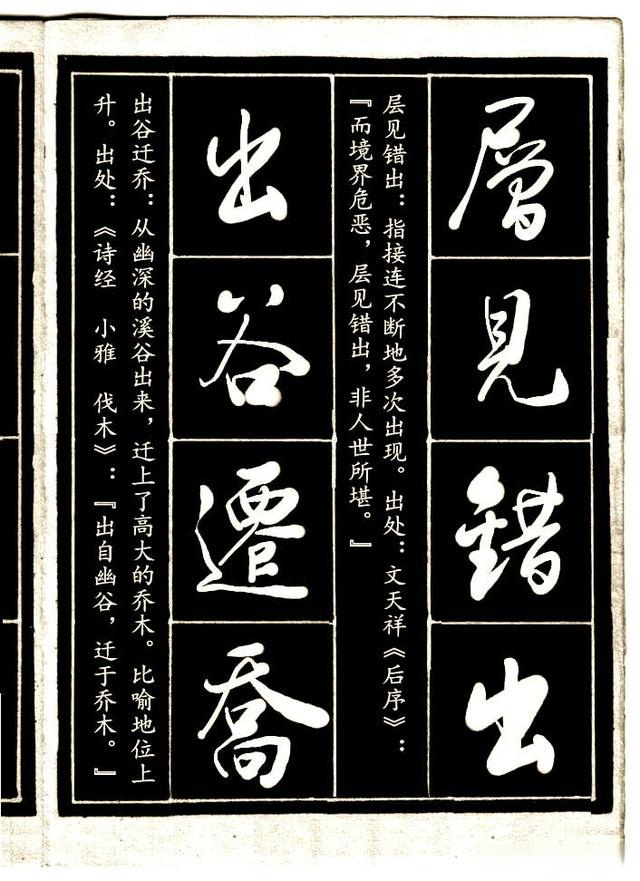 層見錯出
层见错出：指接连不断地多次出现。出处：文天祥《后序》：
『而境界危恶，层见错出，非人世所堪。』
出谷遷喬
出谷迁乔：从幽深的溪谷出来，迁上了高大的乔木。比喻地位上
升。出处：《诗经 小雅 伐木》：『出自幽谷，迁于乔木。』